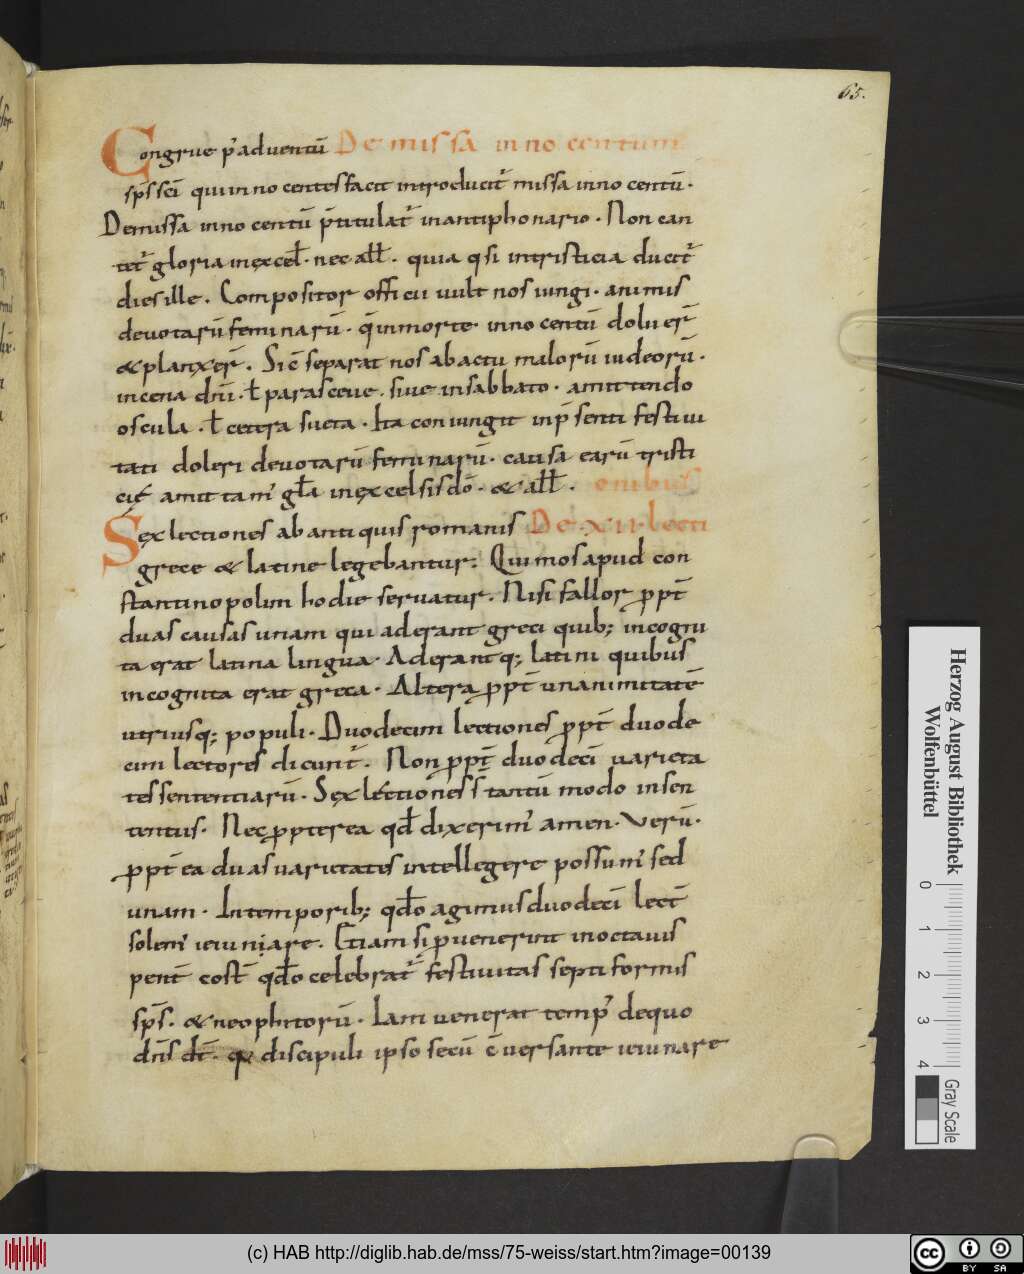 65.
Congrue ꝑ aduentū De missa innocentum
sp̄s sc̄i qui innocentes facit introducit̄ missa innocentū.
De missa innocentū p̄titulat̄ in antiphonario. Non can
tet̄ gloria in excel̄. nec all̄. quia q̄si in tristicia ducit̄
dies ille. Compositor officii uult nos iungi. animis
deuotarū feminarū. q̄ in morte innocentū doluer̄
& planxer̄. Sic̄ separat nos ab actu malorū iudeorū.
in cena dn̄i. ł parasceue. siue in sabbato. amittendo
oscula. ł cetera sueta. Ita coniungit in p̄senti festiui
tati doleri deuotarū feminarū. causa earū tristi
cię amittam̄ gl̄a in excelsis dō. & all̄. onibus
Sex lectiones ab antiquis romanis De xii lecti
grece & latine legebantur; Qui mos apud con
stantinopolim hodie seruatur. Nisi fallor ꝓpt̄
duas causas unam qui aderant greci quib; incogni
ta erat latina lingua. Aderantq; latini quibus
incognita erat greca. Altera ꝓpt̄ unanimitatē
utriusq; populi. Duodecim lectiones ꝓpt̄ duode
cim lectores dicunt̄. Non ꝓpt̄ duodeci varieta
tes sententiarū. Sex lectiones s̄ tantū modo in sen
tentiis. Nec ꝓpterea qđ dixerim̄ amen. Verū.
ꝓpt̄ ea duas uarietates intellegere possum̄ sed
unam. In temporib; qđo agimus duodeci lect̄
solem̄ ieiuniare. Etiam si ꝓuenerint in octauis
pent̄ cost̄ qđo celebrat̄ festiuitas septiformis
sp̄s. & neophitorū. Iam uenerat temp̄ de quo
dn̄s dt̄. q̄ discipuli ipso secū c̄uersante ieiunare
Herzog August Bibliothek
Wolfenbüttel
0 1 2 3 4
Gray Scale
(c) HAB http://diglib.hab.de/mss/75-weiss/start.htm?image=00139
cc BY SA